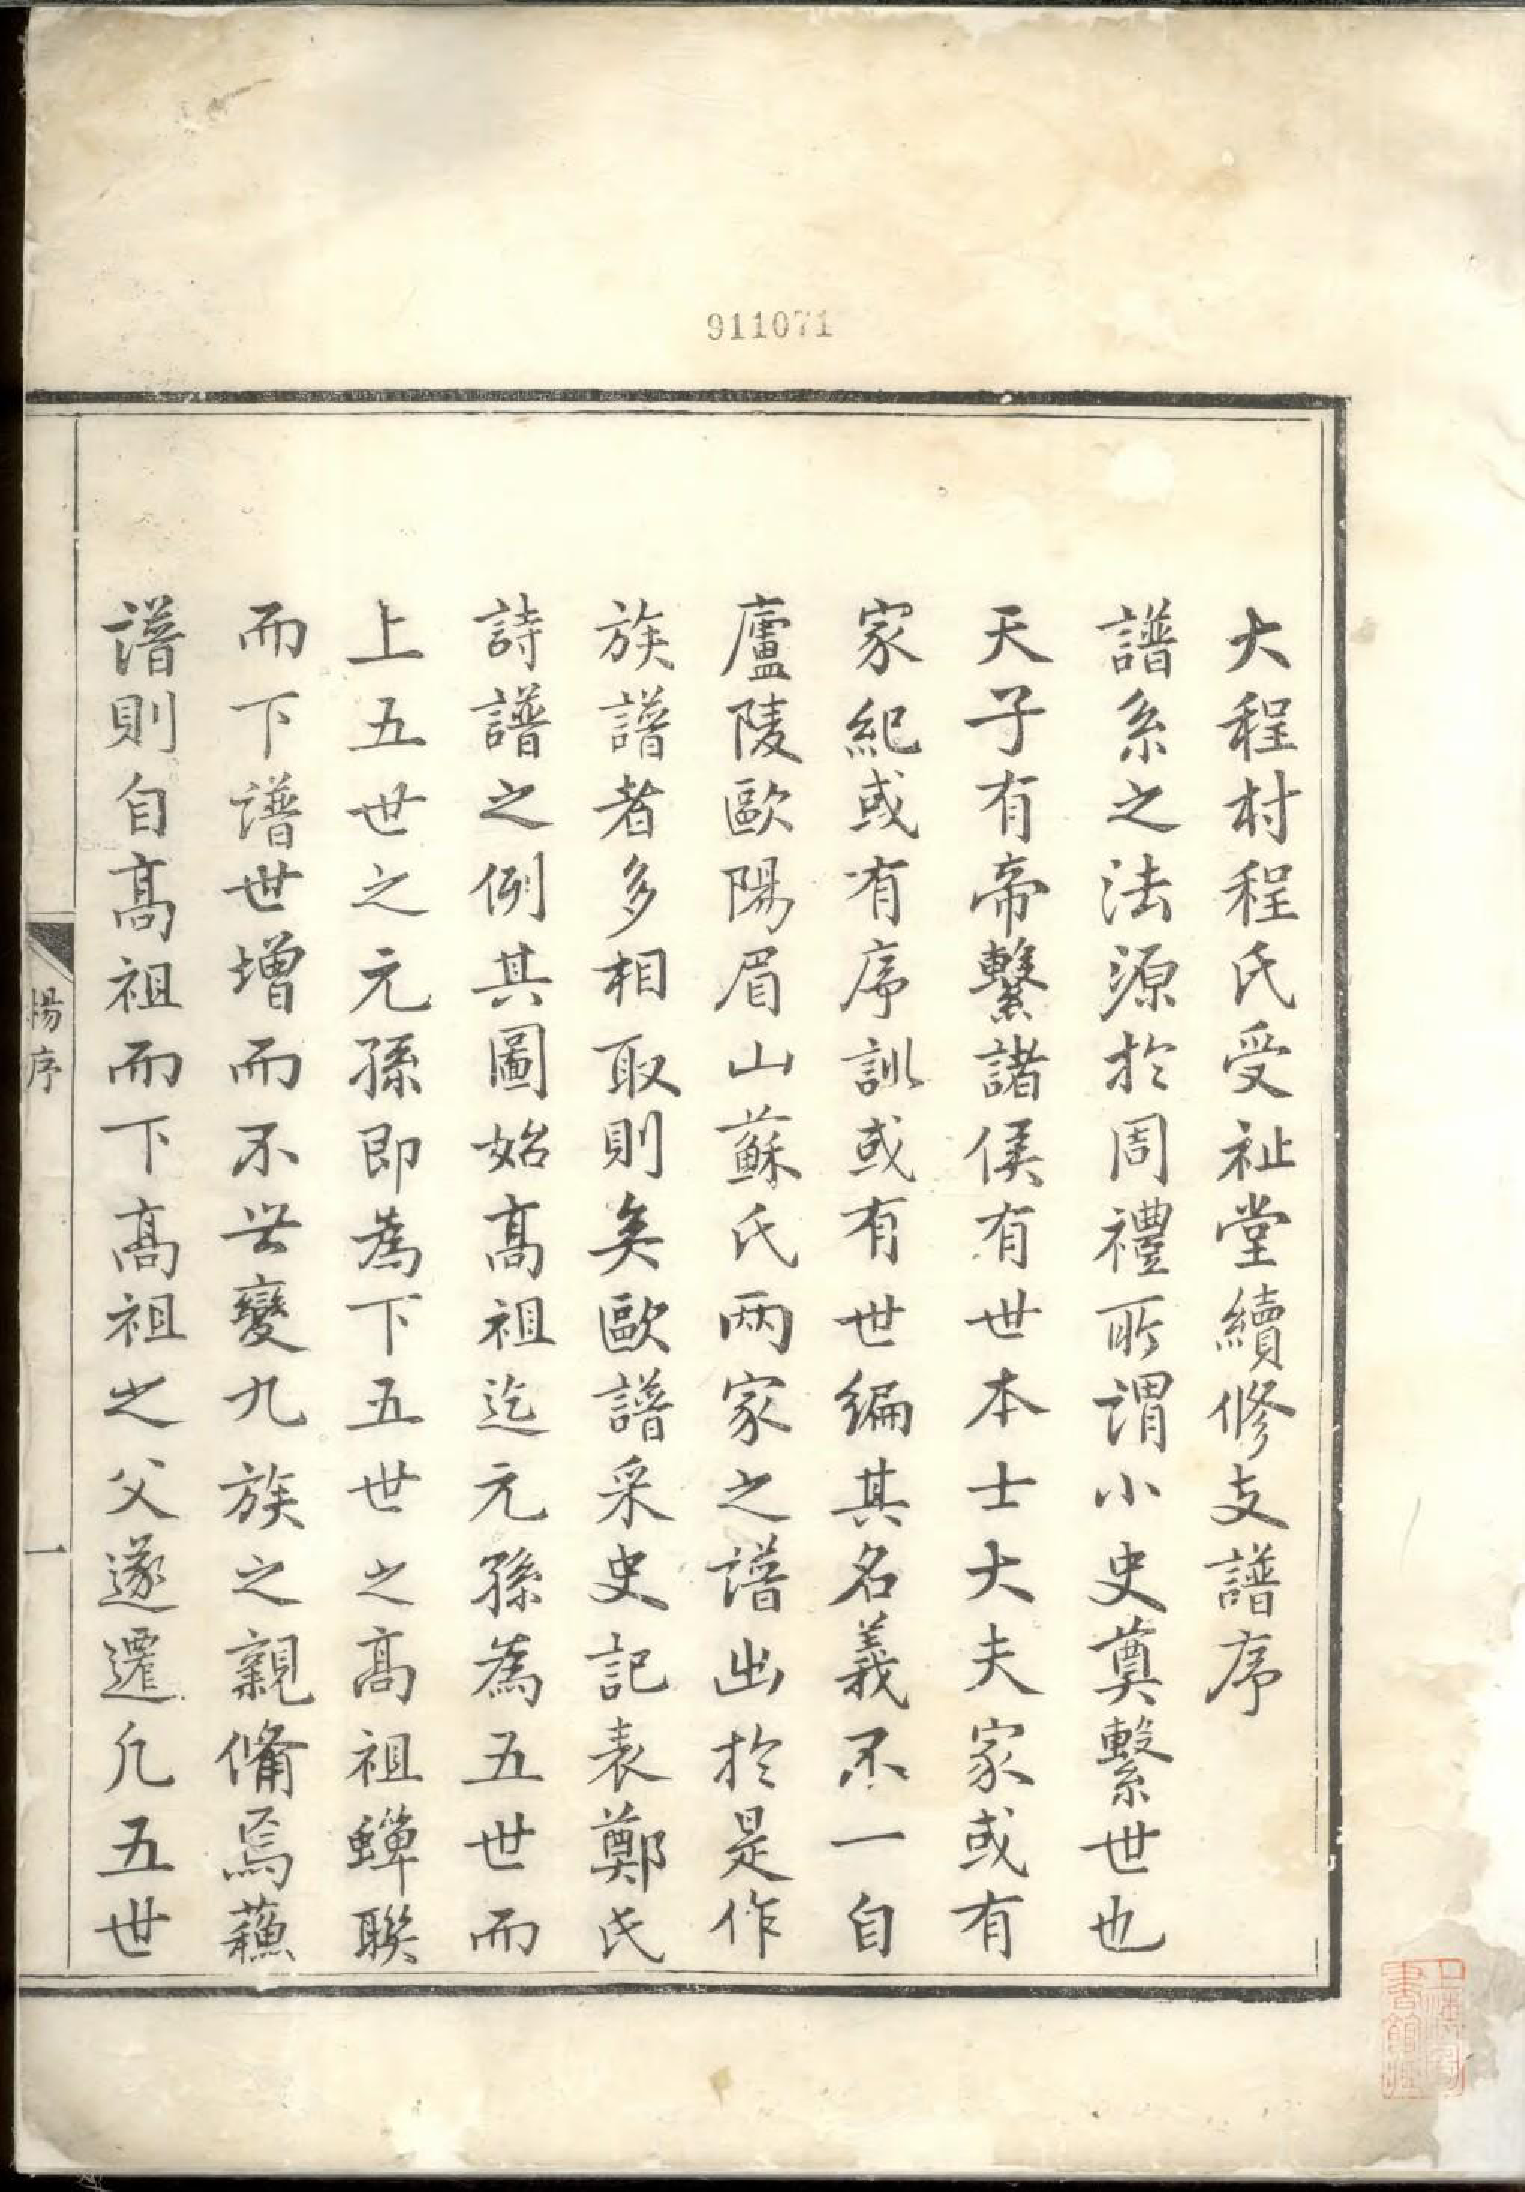 911071
大程村程氏受祉堂續修支譜序
譜系之法源於周禮所謂小史奠繫世也
天子有帝繫諸侯有世本士大夫家或有
家紀或有序訓或有世編其名義不一自
廬陵歐陽眉山蘇氏兩家之譜出於是作
族譜者多相取則矣歐譜采史記表鄭氏
詩譜之例其圖始高祖迄元孫為五世而
上五世之元孫即為下五世之高祖蟬聯
而下譜世增而不世變九族之親備焉蘓
譜則自高祖而下高祖之父遂遷凢五世
楊序
一
上海圖
書館藏